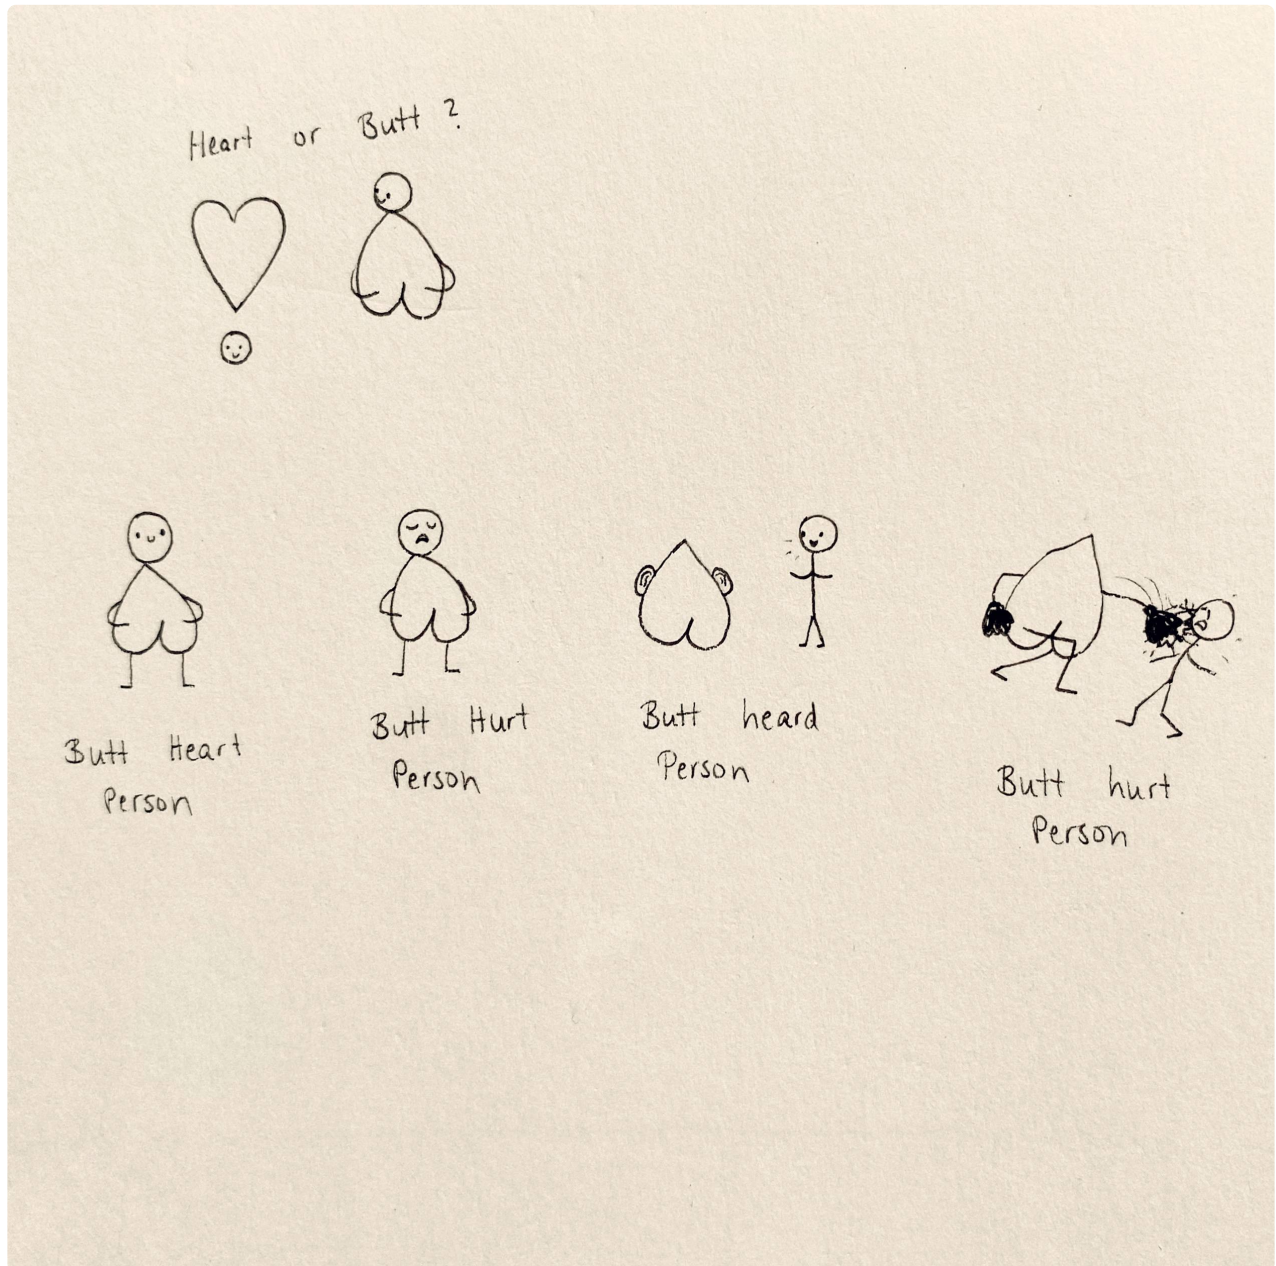 Heart or Butt ?
Butt Heart
Person
Butt Hurt
Person
Butt heard
Person
Butt hurt
Person